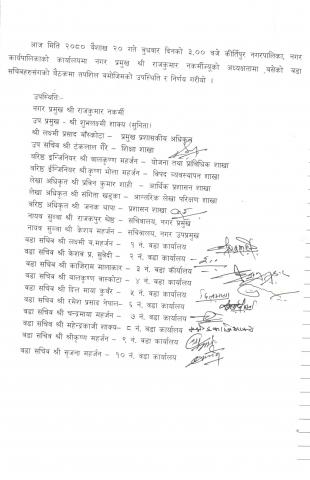 आज मिति २०८० बैशाख २० गते बुधवार दिनको ३.०० वजे कीर्तिपुर नगरपालिका, नगर
कार्यपालिकाको कार्यालयमा नगर प्रमुख श्री राजकुमार नकर्मीज्यूको अध्यक्षतामा बसेको वडा
सचिवहरुसंगको बैठकमा तपशिल बमोजिमको उपस्थिति र निर्णय गरीयो ।
उपस्थितिः-
नगर प्रमुख श्री राजकुमार नकर्मी
उप प्रमुख - श्री शुभलक्ष्मी शाक्य (सुनिता)
श्री लक्ष्मी प्रसाद बाँस्कोटा - प्रमुख प्रशासकीय अधिकृत
उप सचिव श्री टंकलाल गैरे - शिक्षा शाखा
वरिष्ठ इन्जिनियर श्री बालकृष्ण महर्जन - योजना तथा प्राविधिक शाखा
वरिष्ठ ईन्जिनियर श्रीकृष्ण भोला महर्जन - विपद व्यवस्थापन शाखा
लेखा अधिकृत श्री प्रविन कुमार शाही - आर्थिक प्रशासन शाखा
लेखा अधिकृत श्री संगिता खड्का - आन्तरिक लेखा परिक्षण शाखा
वरिष्ठ अधिकृत श्री जनक थापा - प्रशासन शाखा
नायव सुब्बा श्री राजकपुर श्रेष्ठ - सचिवालय, नगर प्रमुख
नायव सुब्बा श्री केशव महर्जन - सचिवालय, नगर उपप्रमुख
वडा सचिव श्री लक्ष्मी ब.महर्जन - १ नं. वडा कार्यालय
वडा सचिव श्री केशव प्र. सुवेदी - २ नं. वडा कार्यालय
वडा सचिव श्री काजिराम मालाकार - ३ नं. वडा कार्यालय
वडा सचिव श्री बालकृष्ण वास्कोटा - ४ नं. वडा कार्यालय
वडा सचिव श्री दिल माया कुवँर - ५ नं. वडा कार्यालय
वडा सचिव श्री रमेश प्रसाद नेपाल- ६ नं. वडा कार्यालय
वडा सचिव श्री चन्द्रमाया महर्जन - ७ नं. वडा कार्यालय
वडा सचिव श्री महेन्द्रकाजी शाक्य- ८ नं. वडा कार्यालय
वडा सचिव श्री श्रीकृष्ण महर्जन - ९ नं. वडा कार्यालय
वडा सचिव श्री सृजना महर्जन - १० नं. वडा कार्यालय